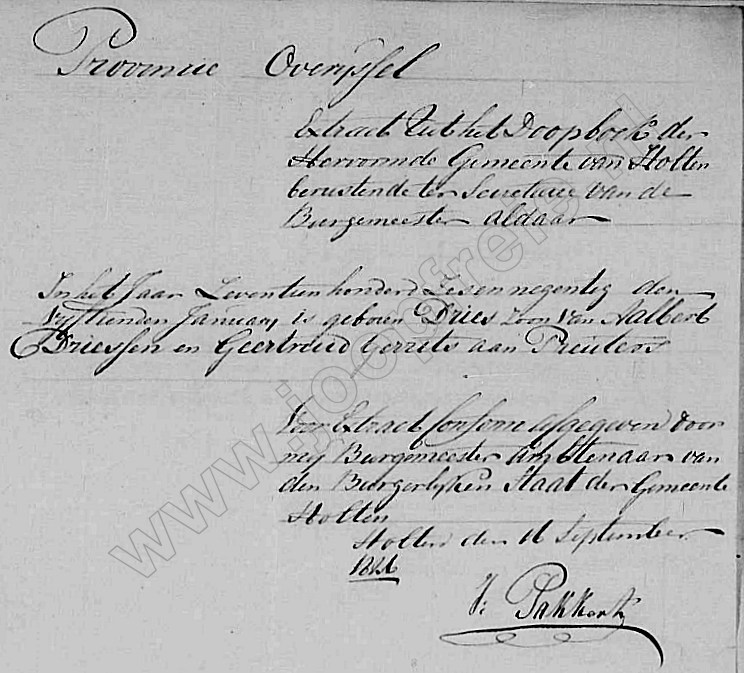 Provincie Overijssel
Extract Uit het Doopboek der
Hervormde Gemeente van Holten
berustende ter Secretarie van de
Burgemeester aldaar
In het Jaar Zeventien honderd Zes en negentig den
vyftienden January is geboren Dries zoon van Aalbert
Driessen en Geertruid Gerrits aan Preuters
Voor Extract Conforme afgegeven door
mij Burgemeester Ambtenaar van
den Burgerlyken Staat der Gemeente
Holten
Holten den 16 September
18